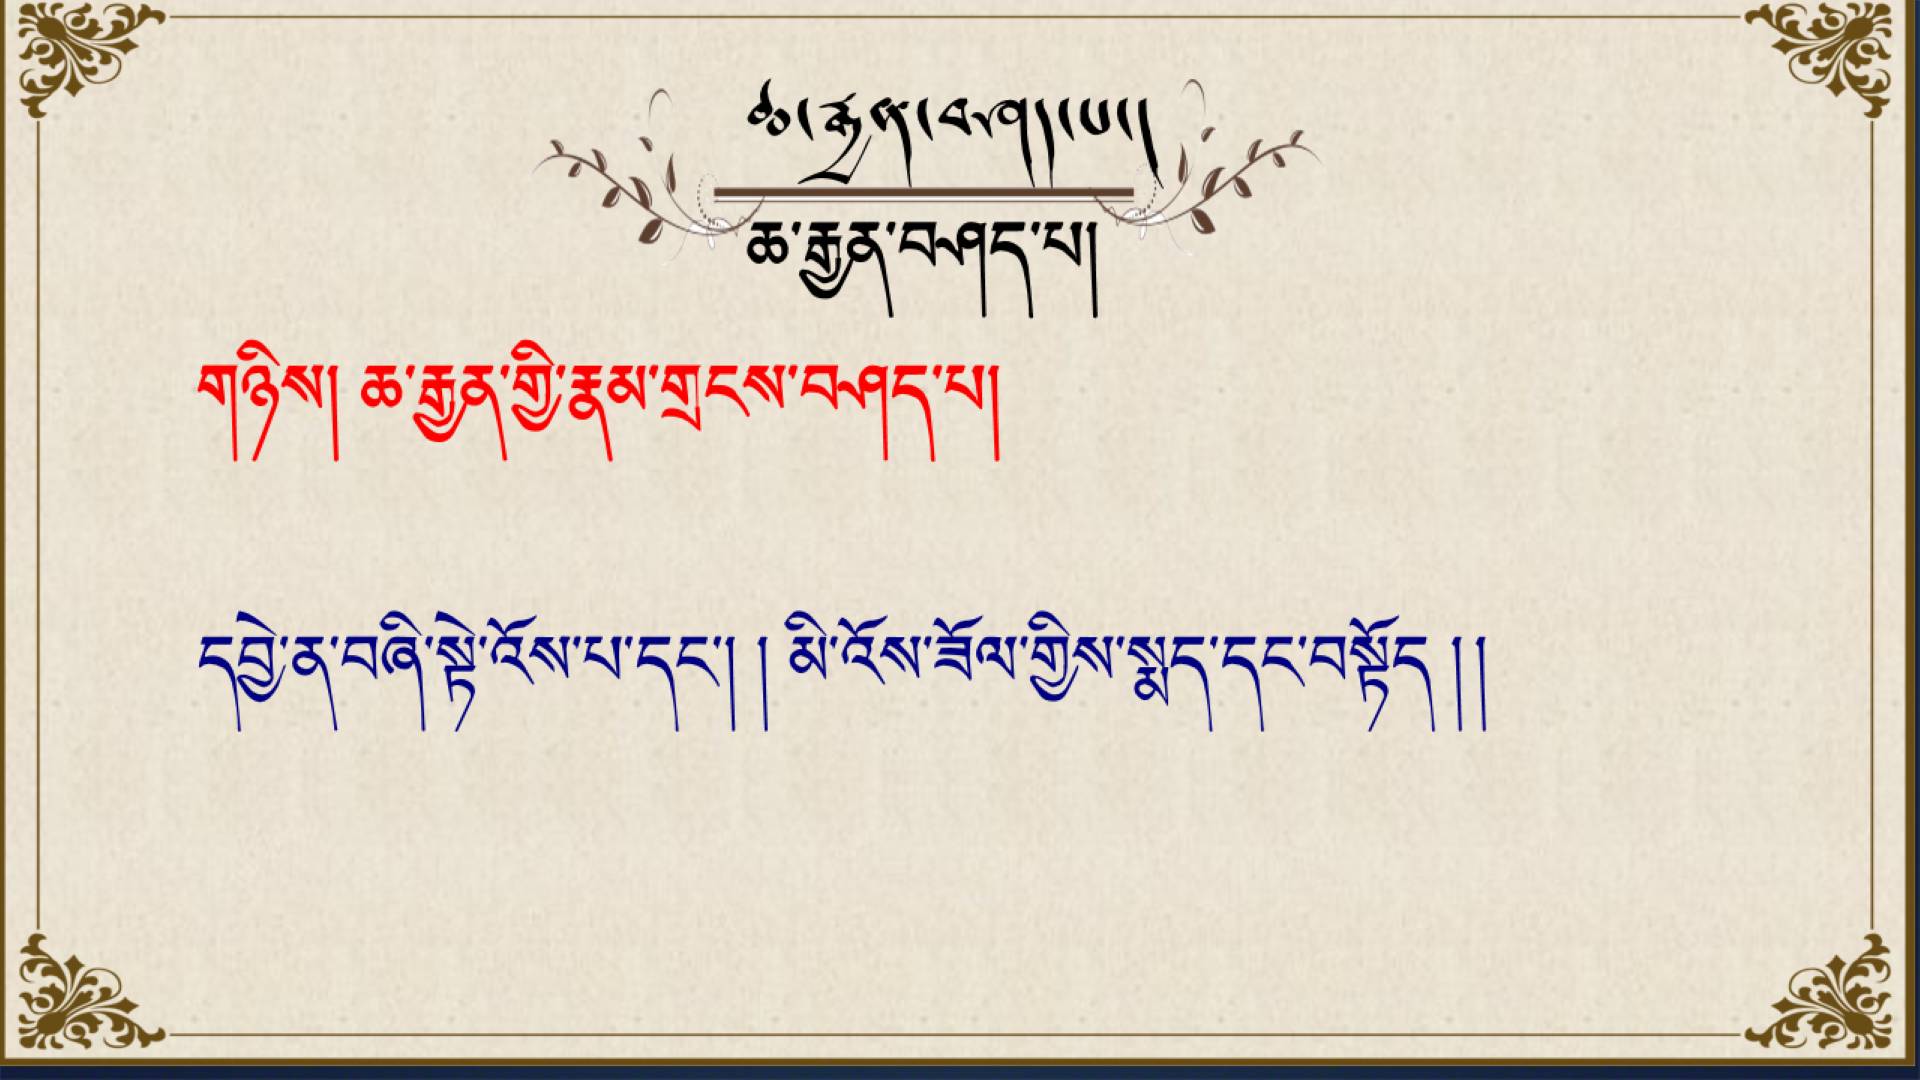 ཆ་རྐྱེན་བཤད་པ།
ཆ་རྐྱེན་བཤད་པ།
གཉིས། ཆ་རྐྱེན་གྱི་རྣམ་གྲངས་བཤད་པ།
དབྱེ་ན་བཞི་སྟེ་འོས་པ་དང་། ། མི་འོས་ཟོལ་གྱིས་སྨད་དང་བསྟོད ། །